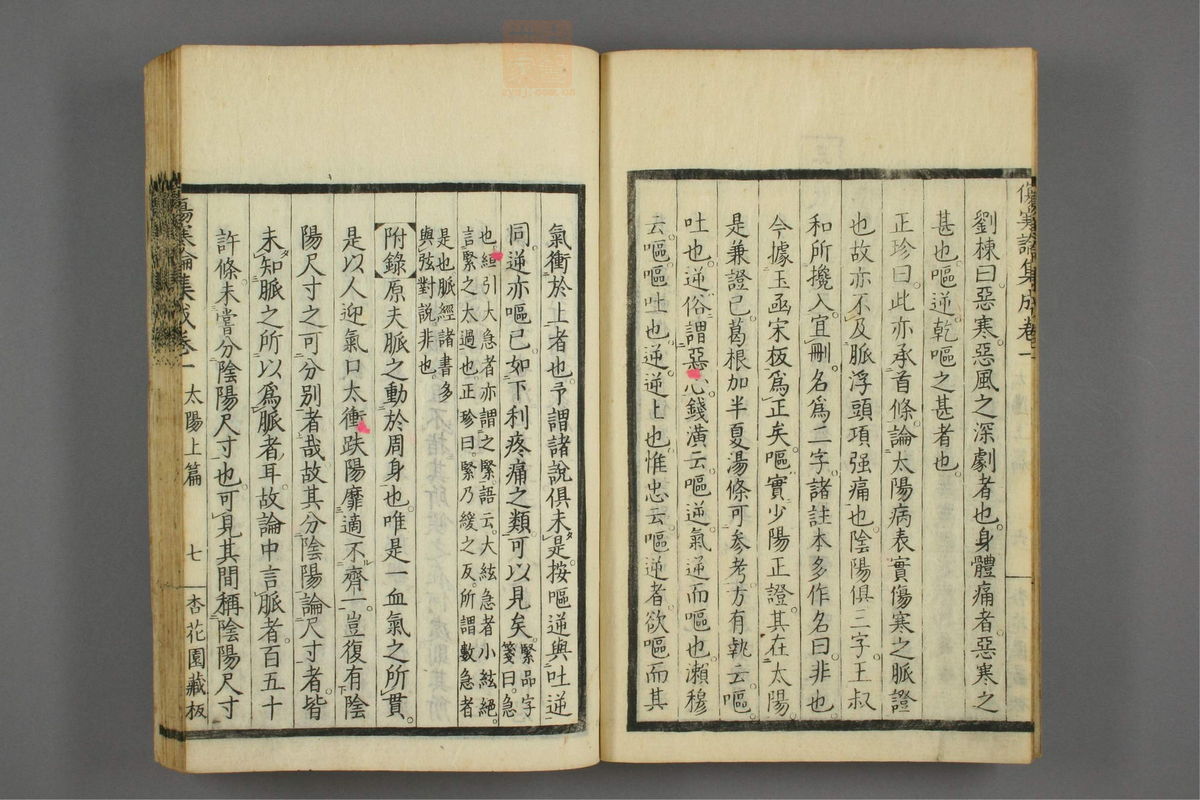 傷寒論集成卷一
劉棟曰。惡寒。惡風之深劇者也。身體痛者。惡寒之
甚也。嘔逆。乾嘔之甚者也。
正珍曰。此亦承首條。論太陽病表實傷寒之脈證
也。故亦不及脈浮頭項强痛也。陰陽俱三字。王叔
和所攙入。宜刪。名爲二字。諸註本多作名曰。非也。
今據玉函宋板爲正矣。嘔實少陽正證。其在太陽
是兼證已。葛根加半夏湯條可參考。方有執云。嘔
吐也。逆。俗謂惡心。錢潢云。嘔逆。氣逆而嘔也。瀨穆
云。嘔。嘔吐也。逆。逆上也。惟忠云。嘔逆者。欲嘔而其
氣衝於上者也。予謂諸說俱未是。按嘔逆與吐逆
同。逆亦嘔已。如下利疼痛之類。可以見矣。緊品字箋曰。急
也。絙引大急者。亦謂之緊。語云。大絃急者。小絃絕。
言緊之太過也。正珍曰。緊乃緩之反。所謂數急者
是也。脈經諸書多
與弦對說。非也。
附錄 原夫脈之動於周身也。唯是一血氣之所貫。
是以人迎氣口太衝趺陽。靡適不齊一。豈復有陰
陽尺寸之可分别者哉。故其分陰陽。論尺寸者。皆
未知脈之所以爲脈者耳。故論中言脈者。百五十
許條。未嘗分陰陽尺寸也。可見其間稱陰陽尺寸
傷寒論集成卷一 太陽上篇 七 杏花園藏板